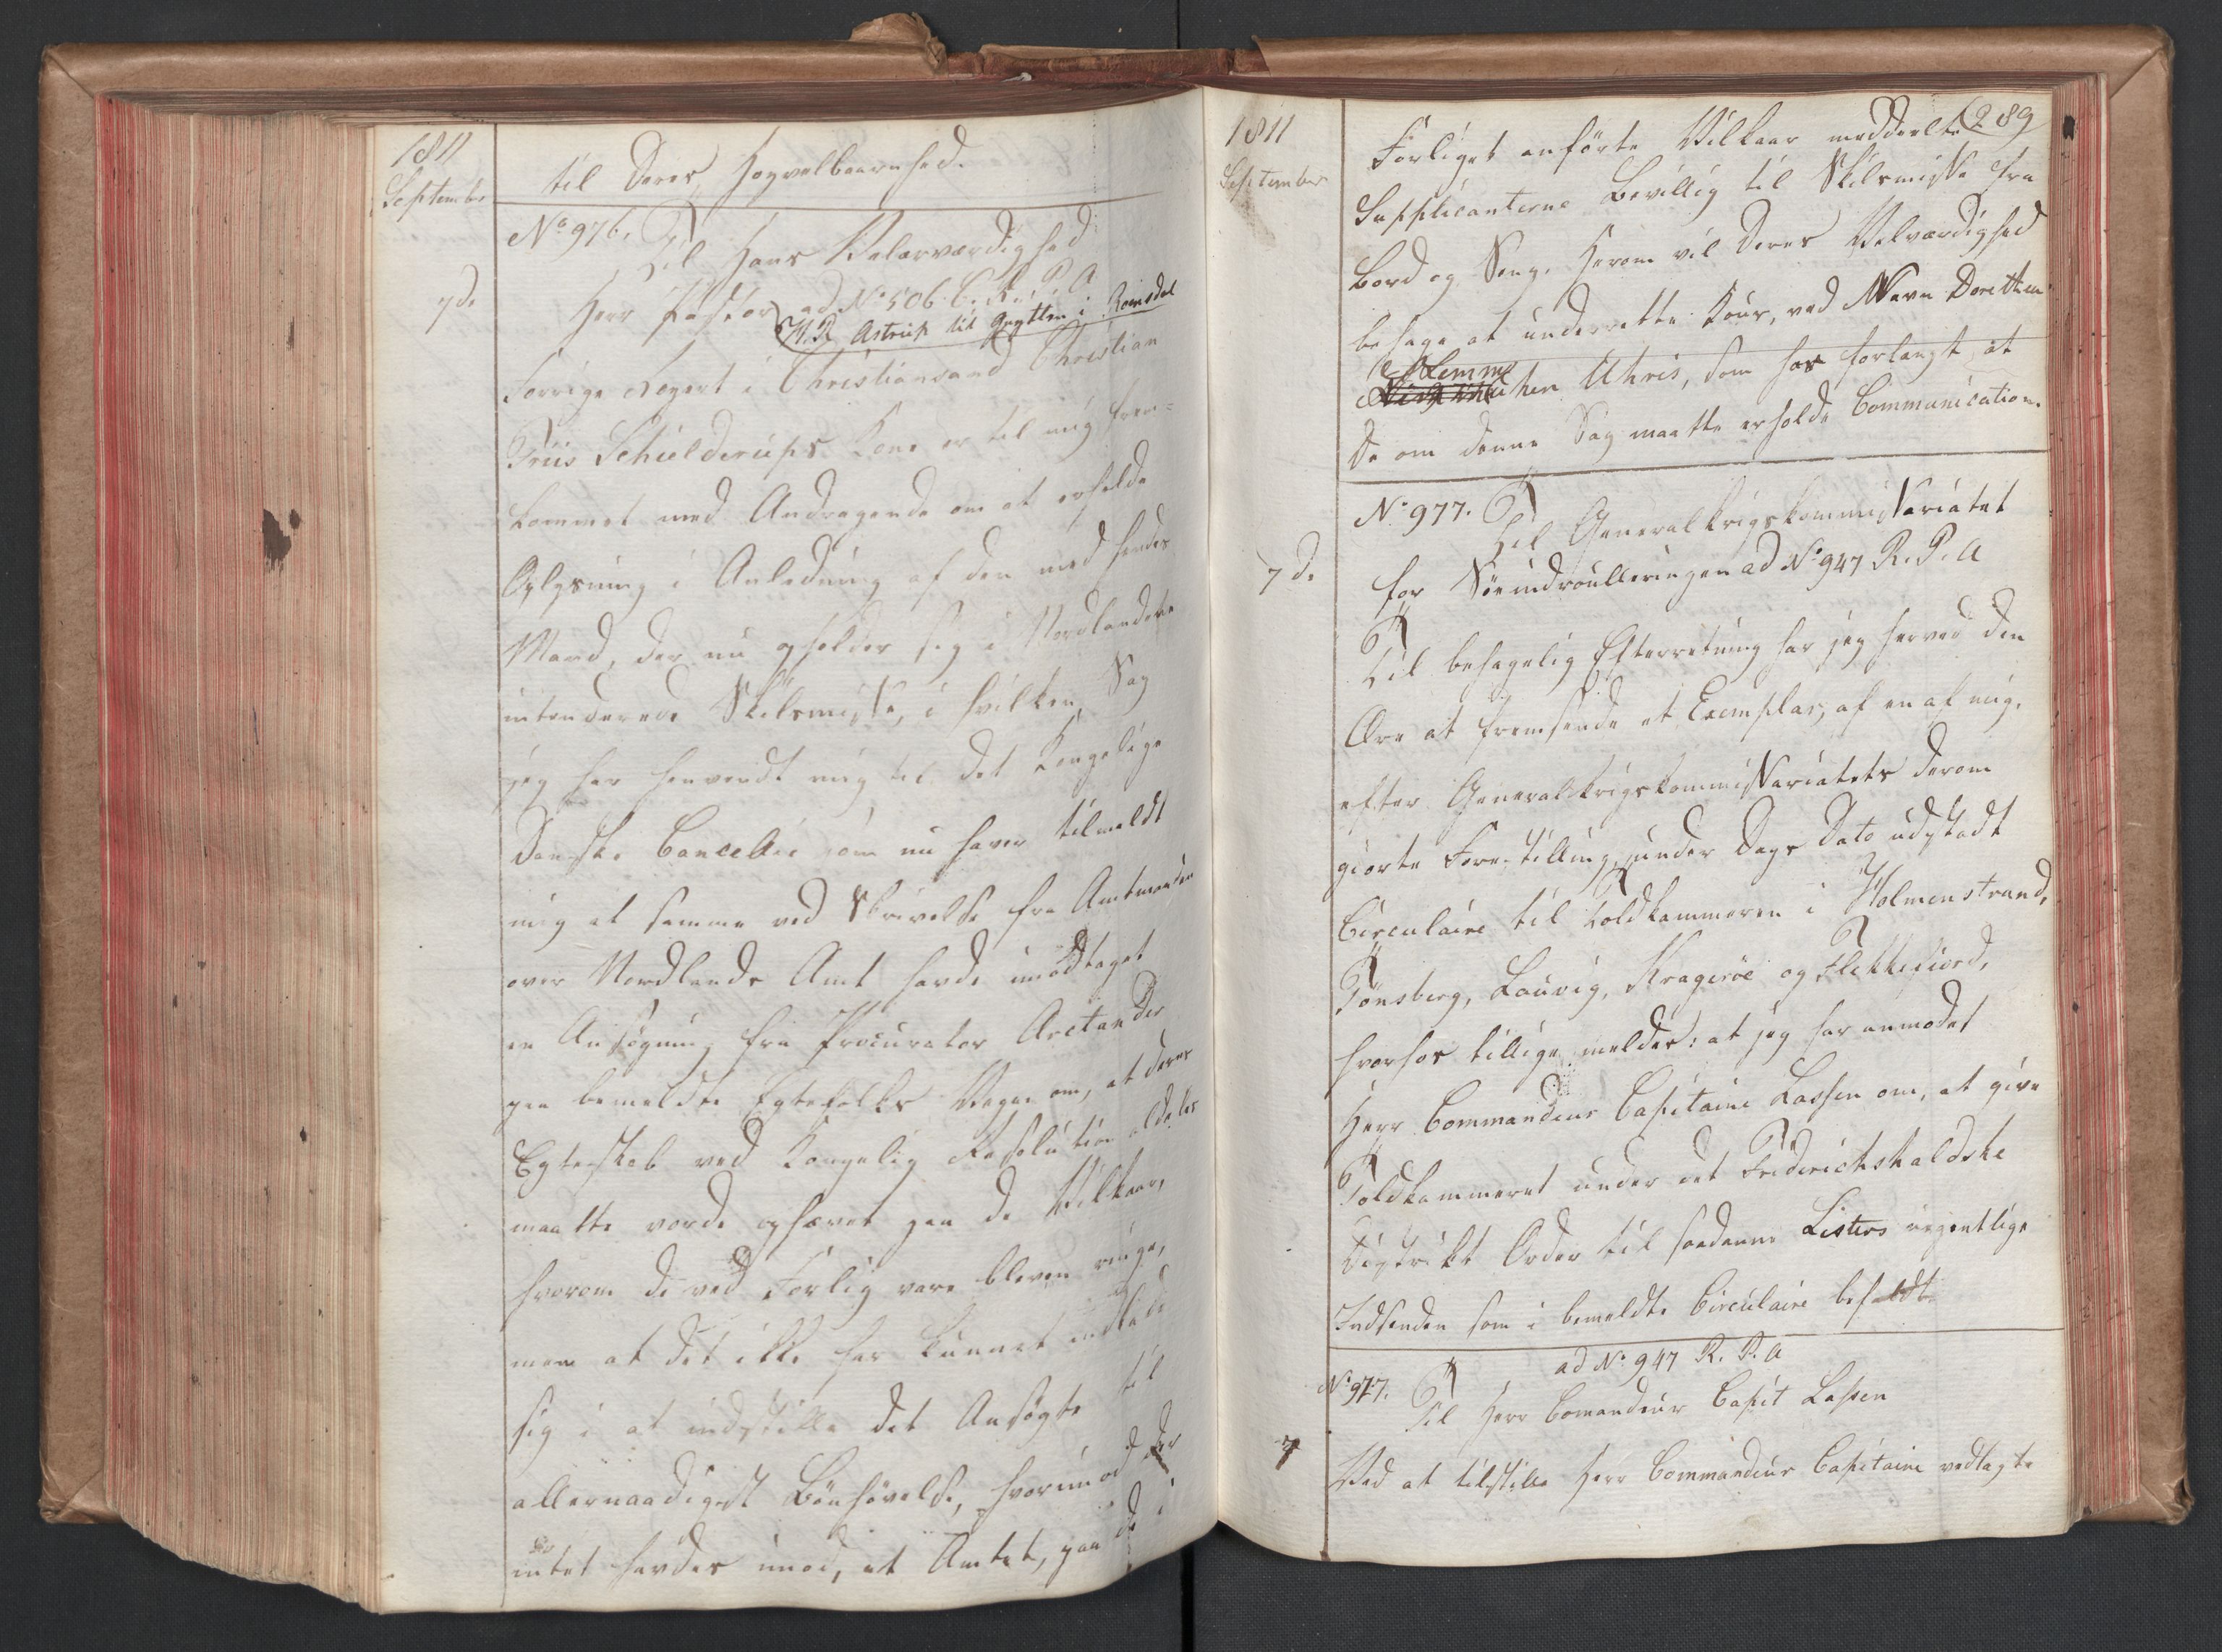 1811
September
til Deres Høyvelbaarenhed.
No 976. Til Hans Velærværdighed
7de
Herr Pastor ad No 506 C. R. P. A
H. R. Astrup til Gryttén i Romsdal
Forrige Foged i Christiansand Christian
Friis Schielderups Kone er til mig frem-
kommet med Andragende om at erholde
Oplysning i Anledning af den med hendes
Mand, der nu opholder sig i Nordlandene
intenderede Skilsmisse, i hvilken Sag
jeg har henvendt mig til det Kongelige
Danske Cancellie som nu haver tilmeldt
mig at samme ved Skrivelse fra Amtmanden
over Nordlands Amt havde imodtaget
en Ansøgning fra Procurator Arctander
paa bemeldte Egtefolks Vegne om, at deres
Egteskab ved Kongelig Resolution aldeles
maatte vorde ophævet paa de Vilkaar,
hvorom de ved Forlig vare bleven enige,
men at det ikke har kunnet indlade
sig i at indstille det Ansøgte til
allernaadigst Bønhørelse, hvorimod der
intet havdes imod, at Amtet, paa de i
1811
September
289
Forliget anførte Vilkaar meddeelte
Supplicanterne Bevillig til Skilsmisse fra
Bord og Seng. Herom vil Deres Velærværdighed
behage at underrette Konen, ved Navn Dorethea
Klemme
Uhris, som har forlangt at
De om denne Sag maatte erholde Communication.
No 977. Til Generalkrigskommissariatet
7de
for Søeindroulleringen ad No 947 R. P. A
Til behagelig Efterretning har jeg herved den
Ære at fremsende et Exemplar, af en af mig,
efter Generalkrigskommissariatets derom
giorte Forestilling, under Dags Dato udstædt
Circulaire til Toldkammeren i Holmenstrand,
Tønsberg, Laurvig, Kragerøe og Flekkefiord,
hvorhos tillige meldes: at jeg har anmodet
Herr Commandeur Capitaine Lassen om, at give
Toldkammeret under det Friderichshaldske
District Ordre til saadanne Listers ugentlige
Indsenden som i bemeldte Circulaire befaldt
No 977. ad No 947 R. P. A
Til Herr Comandeur Capit Lassen
7
Ved at tilstille Herr Commandeur Capitaine vedlagte